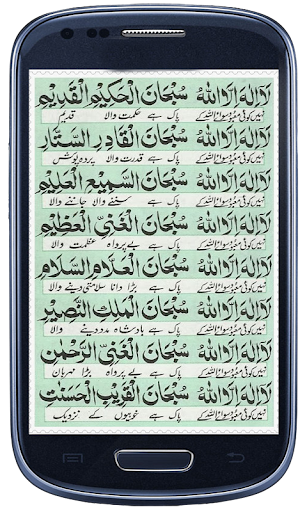 لَا اِلٰهَ اِلَّا اللهُ سُبْحَانَ الْحَكِيْمِ الْقَدِيْمِ
نہیں کوئی معبود سوائے اللہ کے پاک ہے حکمت والا قدیم
لَا اِلٰهَ اِلَّا اللهُ سُبْحَانَ الْقَادِرِ السَّتَّارِ
نہیں کوئی معبود سوائے اللہ کے پاک ہے قدرت والا پردہ پوش
لَا اِلٰهَ اِلَّا اللهُ سُبْحَانَ السَّمِيْعِ الْعَلِيْمِ
نہیں کوئی معبود سوائے اللہ کے پاک ہے سننے والا جاننے والا
لَا اِلٰهَ اِلَّا اللهُ سُبْحَانَ الْغَنِيِّ الْعَظِيْمِ
نہیں کوئی معبود سوائے اللہ کے پاک ہے بے پرواہ عظمت والا
لَا اِلٰهَ اِلَّا اللهُ سُبْحَانَ الْعَلَّامِ السَّلَامِ
نہیں کوئی معبود سوائے اللہ کے پاک ہے بڑا دانا سلامتی دینے والا
لَا اِلٰهَ اِلَّا اللهُ سُبْحَانَ الْمَلِكِ النَّصِيْرِ
نہیں کوئی معبود سوائے اللہ کے پاک ہے بادشاہ مدد دینے والا
لَا اِلٰهَ اِلَّا اللهُ سُبْحَانَ الْغَنِيِّ الرَّحْمٰنِ
نہیں کوئی معبود سوائے اللہ کے پاک ہے بے پرواہ بڑا مہربان
لَا اِلٰهَ اِلَّا اللهُ سُبْحَانَ الْقَرِيْبِ الْحَسَنٰتِ
نہیں کوئی معبود سوائے اللہ کے پاک ہے خوبیوں کے نزدیک